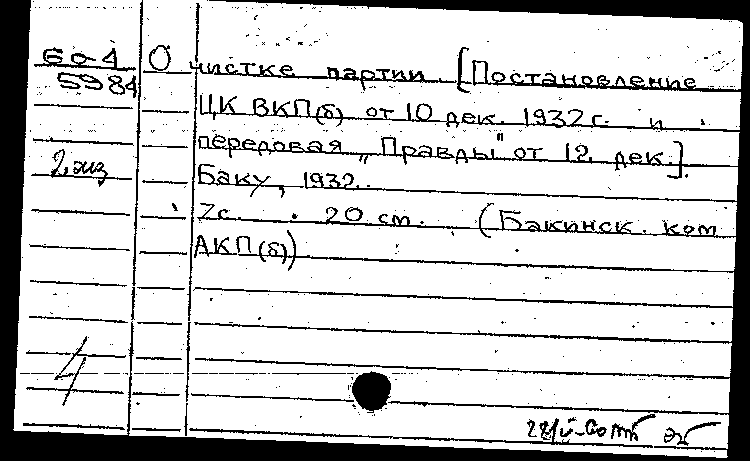 60-4
5984
О чистке партии. [Постановление
ЦК ВКП(б) от 10 дек. 1932 г. и
передовая „Правды" от 12 дек.].
2 экз
Баку, 1932.
7с. 20 см. (Бакинск. ком
АКП(б))
4